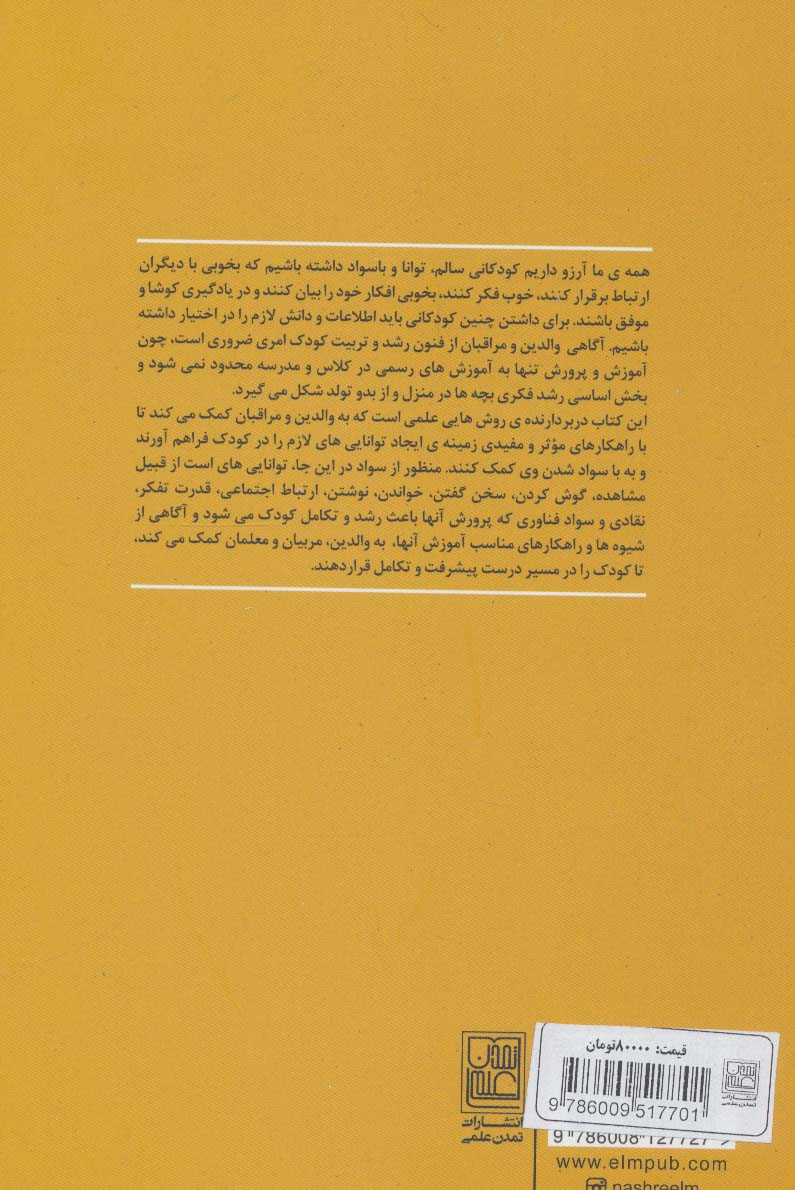 همه ی ما آرزو داریم کودکانی سالم، توانا و باسواد داشته باشیم که بخوبی با دیگران
ارتباط برقرار کنند، خوب فکر کنند، بخوبی افکار خود را بیان کنند و در یادگیری کوشا و
موفق باشند. برای داشتن چنین کودکانی باید اطلاعات و دانش لازم را در اختیار داشته
باشیم. آگاهی والدین و مراقبان از فنون رشد و تربیت کودک امری ضروری است، چون
آموزش و پرورش تنها به آموزش های رسمی در کلاس و مدرسه محدود نمی شود و
بخش اساسی رشد فکری بچه ها در منزل و از بدو تولد شکل می گیرد.
این کتاب دربردارنده ی روش هایی علمی است که به والدین و مراقبان کمک می کند تا
با راهکارهای مؤثر و مفیدی زمینه ی ایجاد توانایی های لازم را در کودک فراهم آورند
و به با سواد شدن وی کمک کنند. منظور از سواد در این جا، توانایی های است از قبیل
مشاهده، گوش کردن، سخن گفتن، خواندن، نوشتن، ارتباط اجتماعی، قدرت تفکر،
نقادی و سواد فناوری که پرورش آنها باعث رشد و تکامل کودک می شود و آگاهی از
شیوه ها و راهکارهای مناسب آموزش آنها، به والدین، مربیان و معلمان کمک می کند،
تا کودک را در مسیر درست پیشرفت و تکامل قراردهند.
قیمت: ۸۰۰۰۰تومان
9 786009 517701
تمدن علمی
انتشارات
تمدن علمی
تمدن علمی
انتشارات
تمدن علمی
www.elmpub.com
nashreelm